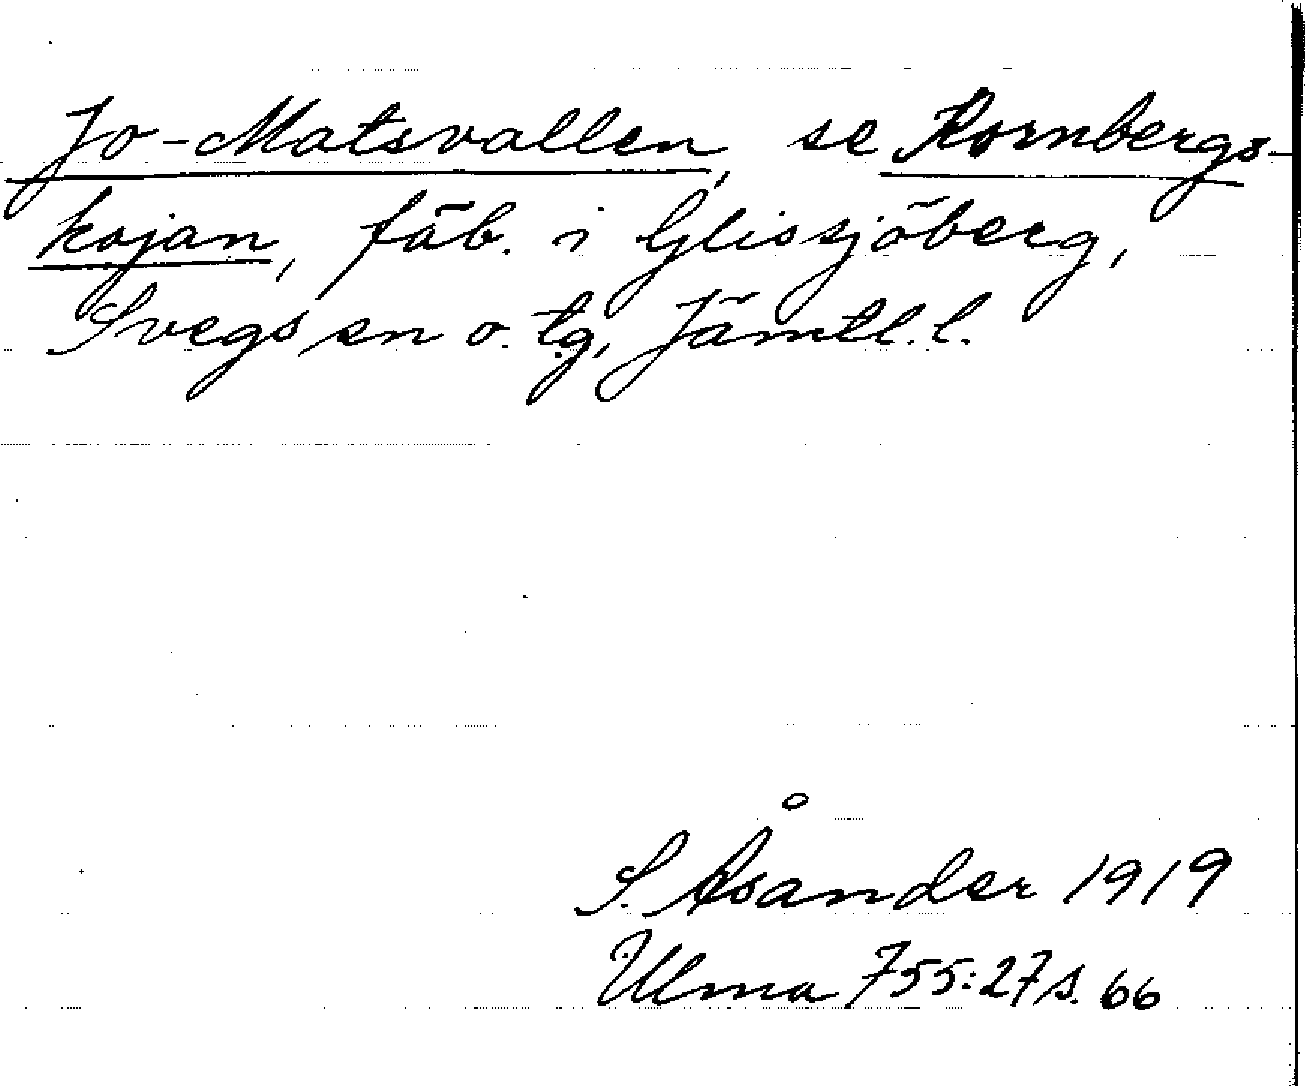 Jo-Matsvallen, se Kornbergs-
kojan, fäb. i Glissjöberg,
Svegs sn o. tg, Jämtl. l.
S. Åsander 1919
Ulma 755:27 s. 66